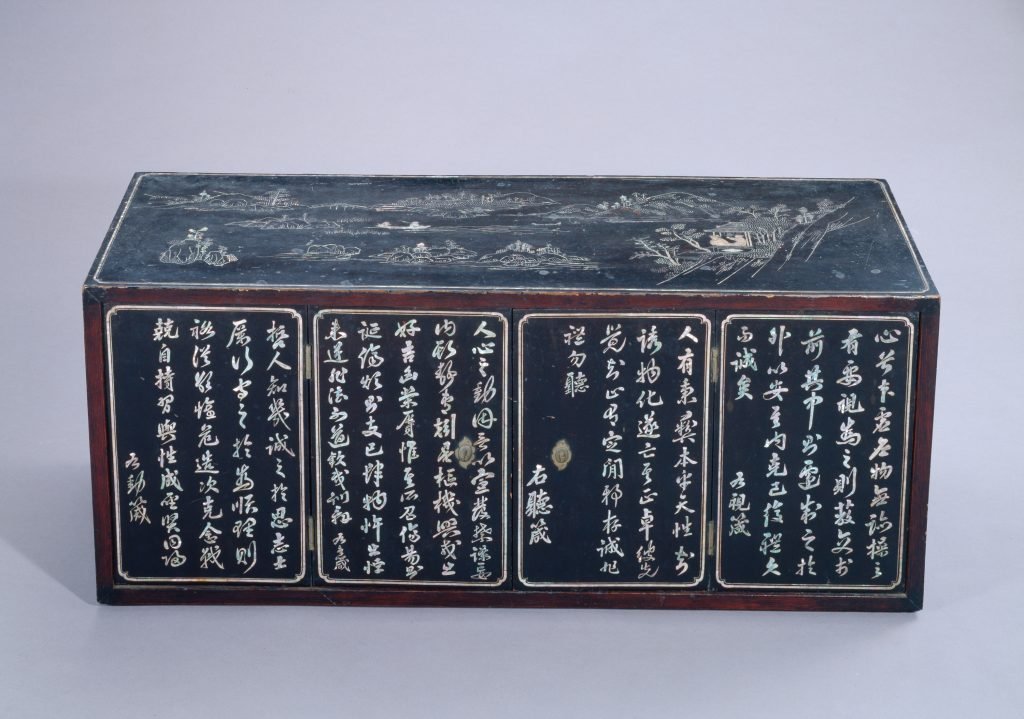 心兮本虛應物無迹操之
有要視為之則蔽交於
前其中則遷制之於
外以安其內克己復禮久
而誠矣
右視箴
人有秉彝本乎天性知
誘物化遂亡其正卓彼先
覺知止有定閑邪存誠非
禮勿聽
右聽箴
人心之動因言以宣發禁躁妄
內斯靜專矧是樞機興戎出
好吉凶榮辱惟其所召傷易則
誕傷煩則支己肆物忤出悖
來違非法不道欽哉訓辭 右言箴
哲人知幾誠之於思志士
厲行守之於為順理則
裕從欲惟危造次克念戰
兢自持習與性成聖賢同歸
右動箴